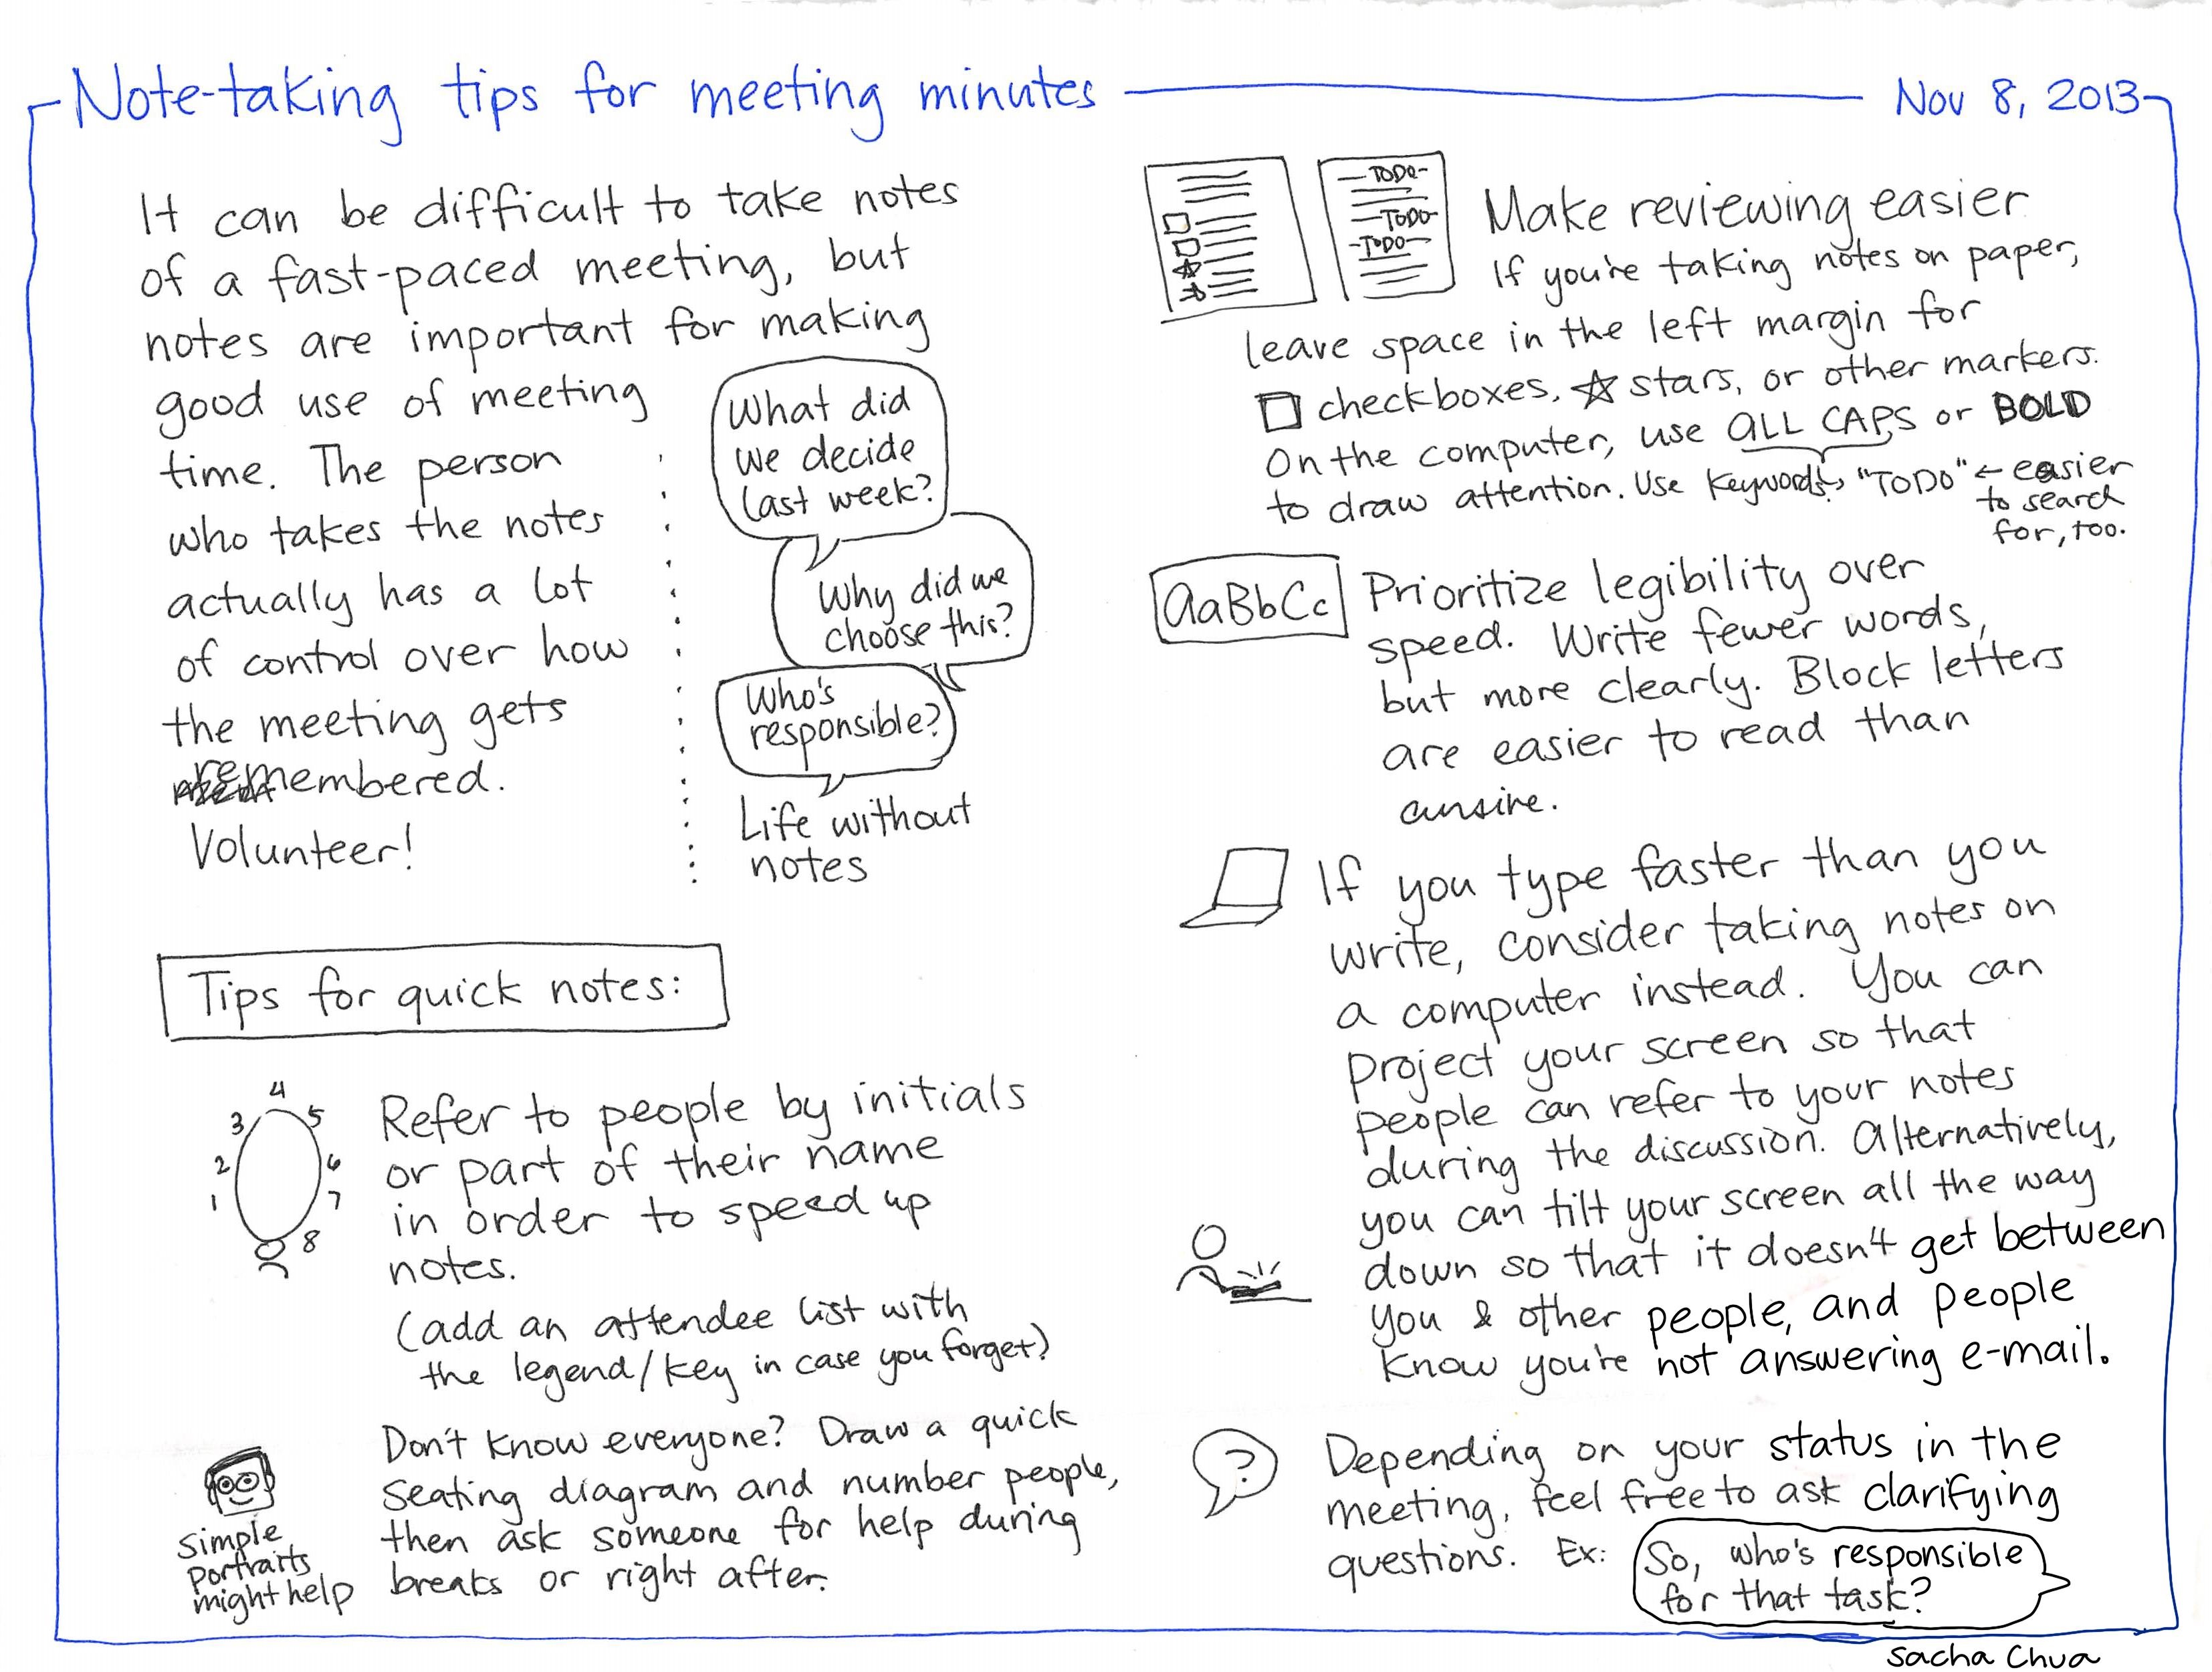 Note-taking tips for meeting minutes
Nov 8, 2013
It can be difficult to take notes
of a fast-paced meeting, but
notes are important for making
good use of meeting
time. The person
who takes the notes
actually has a lot
of control over how
the meeting gets
remembered.
Volunteer!
What did
we decide
last week?
Why did we
choose this?
Who's
responsible?
Life without
notes
Tips for quick notes:
4
3 5
2 6
1 7
8
Refer to people by initials
or part of their name
in order to speed up
notes.
(add an attendee list with
the legend/key in case you forget)
simple
portraits
might help
Don't know everyone? Draw a quick
seating diagram and number people,
then ask someone for help during
breaks or right after.
TODO
TODO
TODO
Make reviewing easier
If you're taking notes on paper,
leave space in the left margin for
checkboxes, stars, or other markers.
On the computer, use ALL CAPS or BOLD
to draw attention. Use keywords "TODO" ← easier
to search
for, too.
AaBbCc
Prioritize legibility over
speed. Write fewer words,
but more clearly. Block letters
are easier to read than
cursive.
If you type faster than you
write, consider taking notes on
a computer instead. You can
project your screen so that
people can refer to your notes
during the discussion. Alternatively,
you can tilt your screen all the way
down so that it doesn't get between
you & other people, and people
know you're not answering e-mail.
?
Depending on your status in the
meeting, feel free to ask clarifying
questions. Ex:
So, who's responsible
for that task?
Sacha Chua